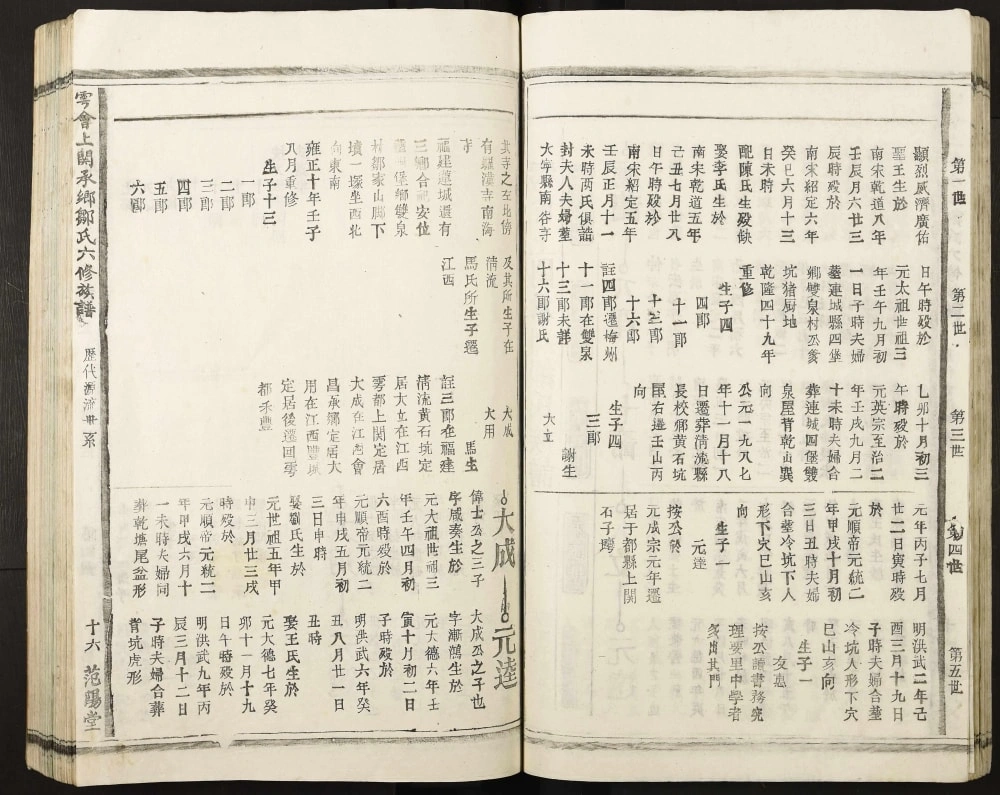 第一世
第二世
第三世
第四世
第五世
顯烈威濟廣佑
聖王生於
南宋乾道八年
壬辰月六廿三
辰時殁於
南宋紹定六年
癸巳六月十三
日未時
配陳氏生殁缺
娶李氏生於
南宋乾道五年
己丑七月廿八
日午時殁於
南宋紹定五年
壬辰正月十一
未時两氏俱誥
封夫人夫婦塟
大寧縣南谷寺
日午時殁於
元太祖世祖三
年壬午九月初
一日子時夫婦
塟連城縣四堡
鄉雙泉村公爹
坑猪厨地
乾隆四十九年
重修
生子四
四郎
十一郎
十三郎
十六郎
註四郎遷梅州
十一郎在雙泉
十三郎未詳
十六郎謝氏
乚卯十月初三
午時殁於
元英宗至治二
年壬戌九月二
十未時夫婦合
葬連城四堡雙
泉屋背乾山巽
向
公元一九八七
年十一月十八
日遷葬清流縣
長校鄉黄石坑
右邊壬山丙
向
生子四
三郎
謝生
大立
元年丙子七月
廿二日寅時殁
於
元順帝元統二
年甲戌十月初
三日丑時夫婦
合塟冷坑下人
形下穴巳山亥
向
生子一
元逹
按公於
元成宗元年遷
居于都縣上関
石子塆
明洪武二年己
酉三月十九日
子時夫婦合塟
冷坑人形下穴
巳山亥向
生子一
友惠
按公讀書務究
理要里中學者
多出其門
其寺之左地傍
有羅漢寺南海
寺
福建蓮城還有
三鄉合祀安位
堡鄉雙泉
村鄒家山脚下
墳一塚坐西北
向東南
雍正十年壬子
八月重修
生子十三
一郎
二郎
三郎
四郎
五郎
六郎
及其所生子在
清流
馬氏所生子遷
江西
大成
大用
馬生
註三郎在福建
清流黄石坑定
居大立在江西
雩都上関定居
大成在江西會
昌承鄉定居大
用在江西豐城
定居後遷回雩
都禾豐
大成
元逵
偉士公之三子
字咸奏生於
元大祖世祖三
年壬午四月初
六酉時殁於
元順帝元統二
年申戌五月初
三日申時
娶劉氏生於
元世祖五年甲
申三月廿三戌
時殁於
元順帝元統二
年甲戌六月十
一未時夫婦同
葬乾塘尾盆形
大成公之子也
字漸鴻生於
元大德六年壬
寅十月初二日
子時殁於
明洪武六年癸
丑八月廿一日
丑時
娶王氏生於
元大德七年癸
卯十一月十九
日午時殁於
明洪武九年丙
辰三月十二日
子時夫婦合葬
賞坑虎形
雩會上関承鄉鄒氏六修族譜
歷代源流世系
十六
范陽堂